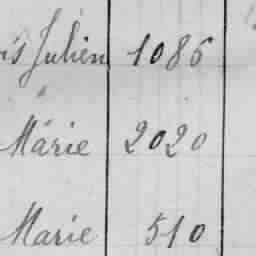 is Julien 1086
Marie 2020
Marie 510